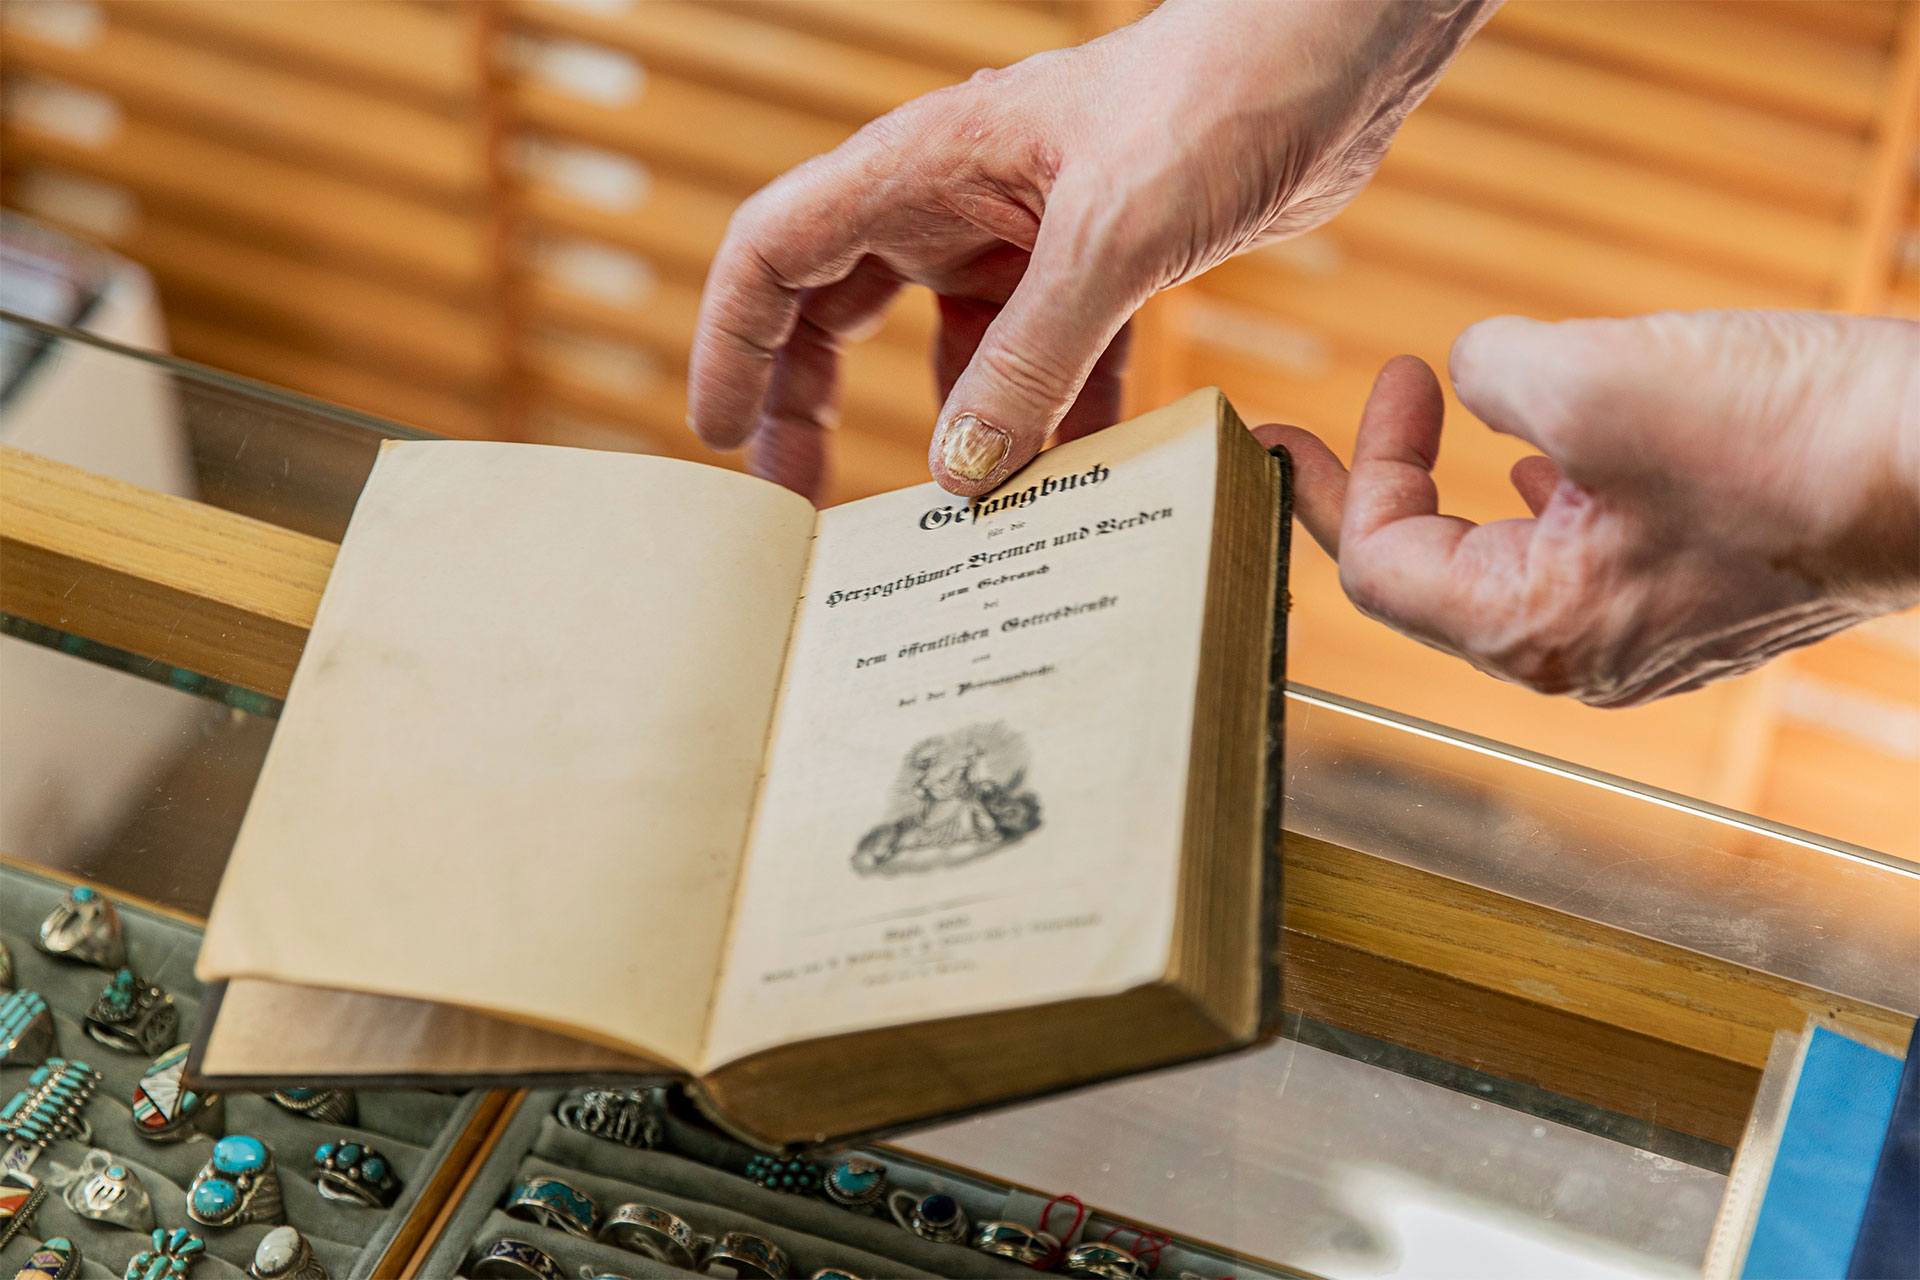 Gesangbuch
für die
Herzogthümer Bremen und Verden
zum Gebrauch
bei
dem öffentlichen Gottesdienste
und
bei der Privatandacht.